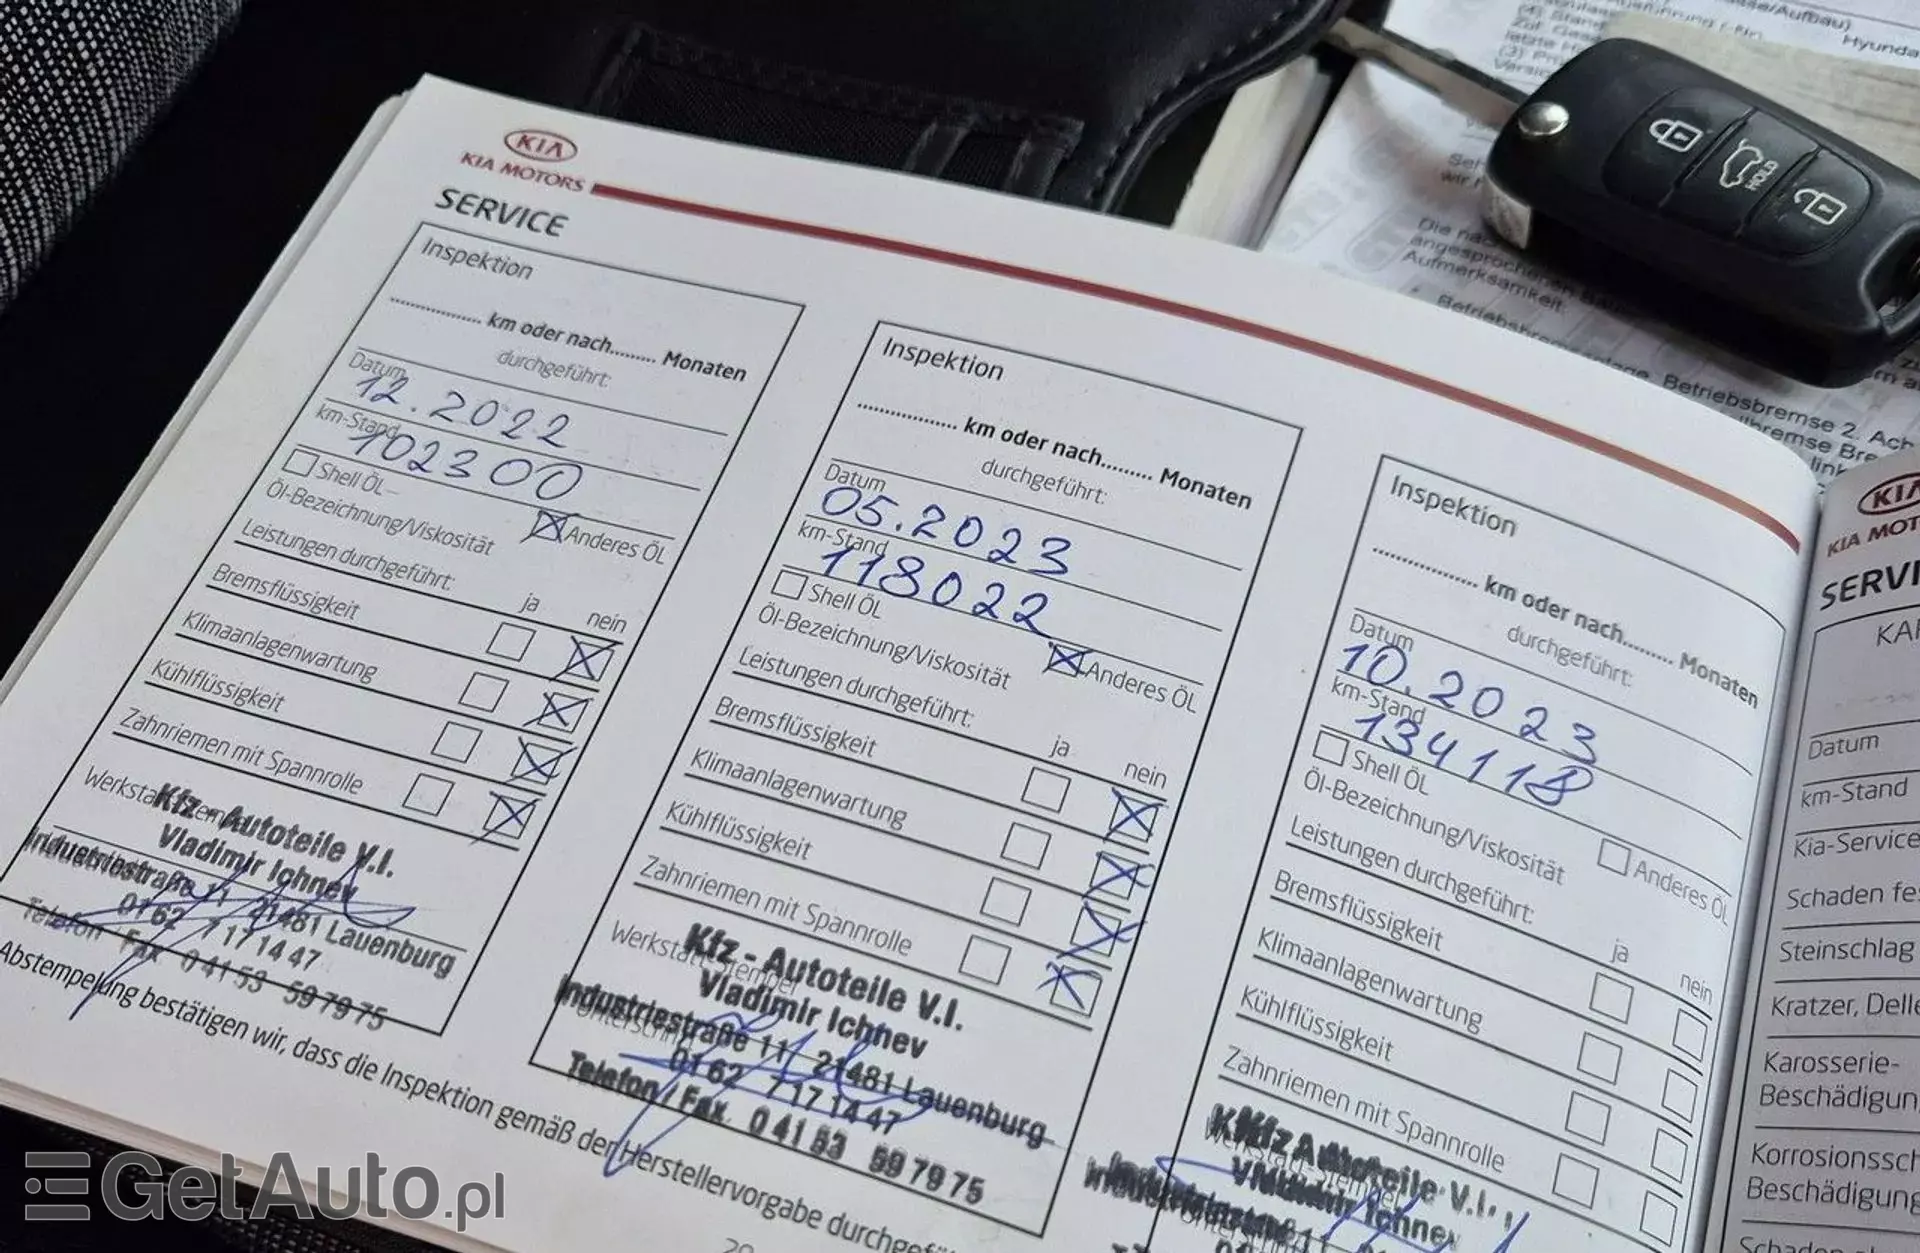 KIA
KIA MOTORS
SERVICE
Inspektion
km oder nach......... Monaten
durchgeführt:
Datum
12.2022
km-Stand
102300
Shell ÖL
Anderes ÖL
Öl-Bezeichnung/Viskosität
Leistungen durchgeführt:
ja nein
Bremsflüssigkeit
Klimaanlagenwartung
Kühlflüssigkeit
Zahnriemen mit Spannrolle
Kfz - Autoteile V.I.
Vladimir Ichnev
Industriestraße 11 21481 Lauenburg
0162 7171447
Telefon / Fax 04153 597975
Inspektion
km oder nach......... Monaten
durchgeführt:
Datum
05.2023
km-Stand
118022
Shell ÖL
Anderes ÖL
Öl-Bezeichnung/Viskosität
Leistungen durchgeführt:
ja nein
Bremsflüssigkeit
Klimaanlagenwartung
Kühlflüssigkeit
Zahnriemen mit Spannrolle
Werkstattstempel
Kfz - Autoteile V.I.
Vladimir Ichnev
Industriestraße 11 21481 Lauenburg
0162 7171447
Telefon / Fax. 04153 597975
Inspektion
km oder nach......... Monaten
durchgeführt:
Datum
10.2023
km-Stand
134118
Shell ÖL
Anderes ÖL
Öl-Bezeichnung/Viskosität
Leistungen durchgeführt:
ja nein
Bremsflüssigkeit
Klimaanlagenwartung
Kühlflüssigkeit
Zahnriemen mit Spannrolle
Kfz Autoteile V.I.
Ichnev
Abstempelung bestätigen wir, dass die Inspektion gemäß der Herstellervorgabe
KIA
SERVI
Datum
km-Stand
Kia-Service
Schaden
Steinschlag
Kratzer,
Karosserie-
Beschädigun
Korrosionssch
Beschädigung
HOLD
Hyunda
Aufmerksamkeit.
Betriebsbremse 2. Ach
GetAuto.pl